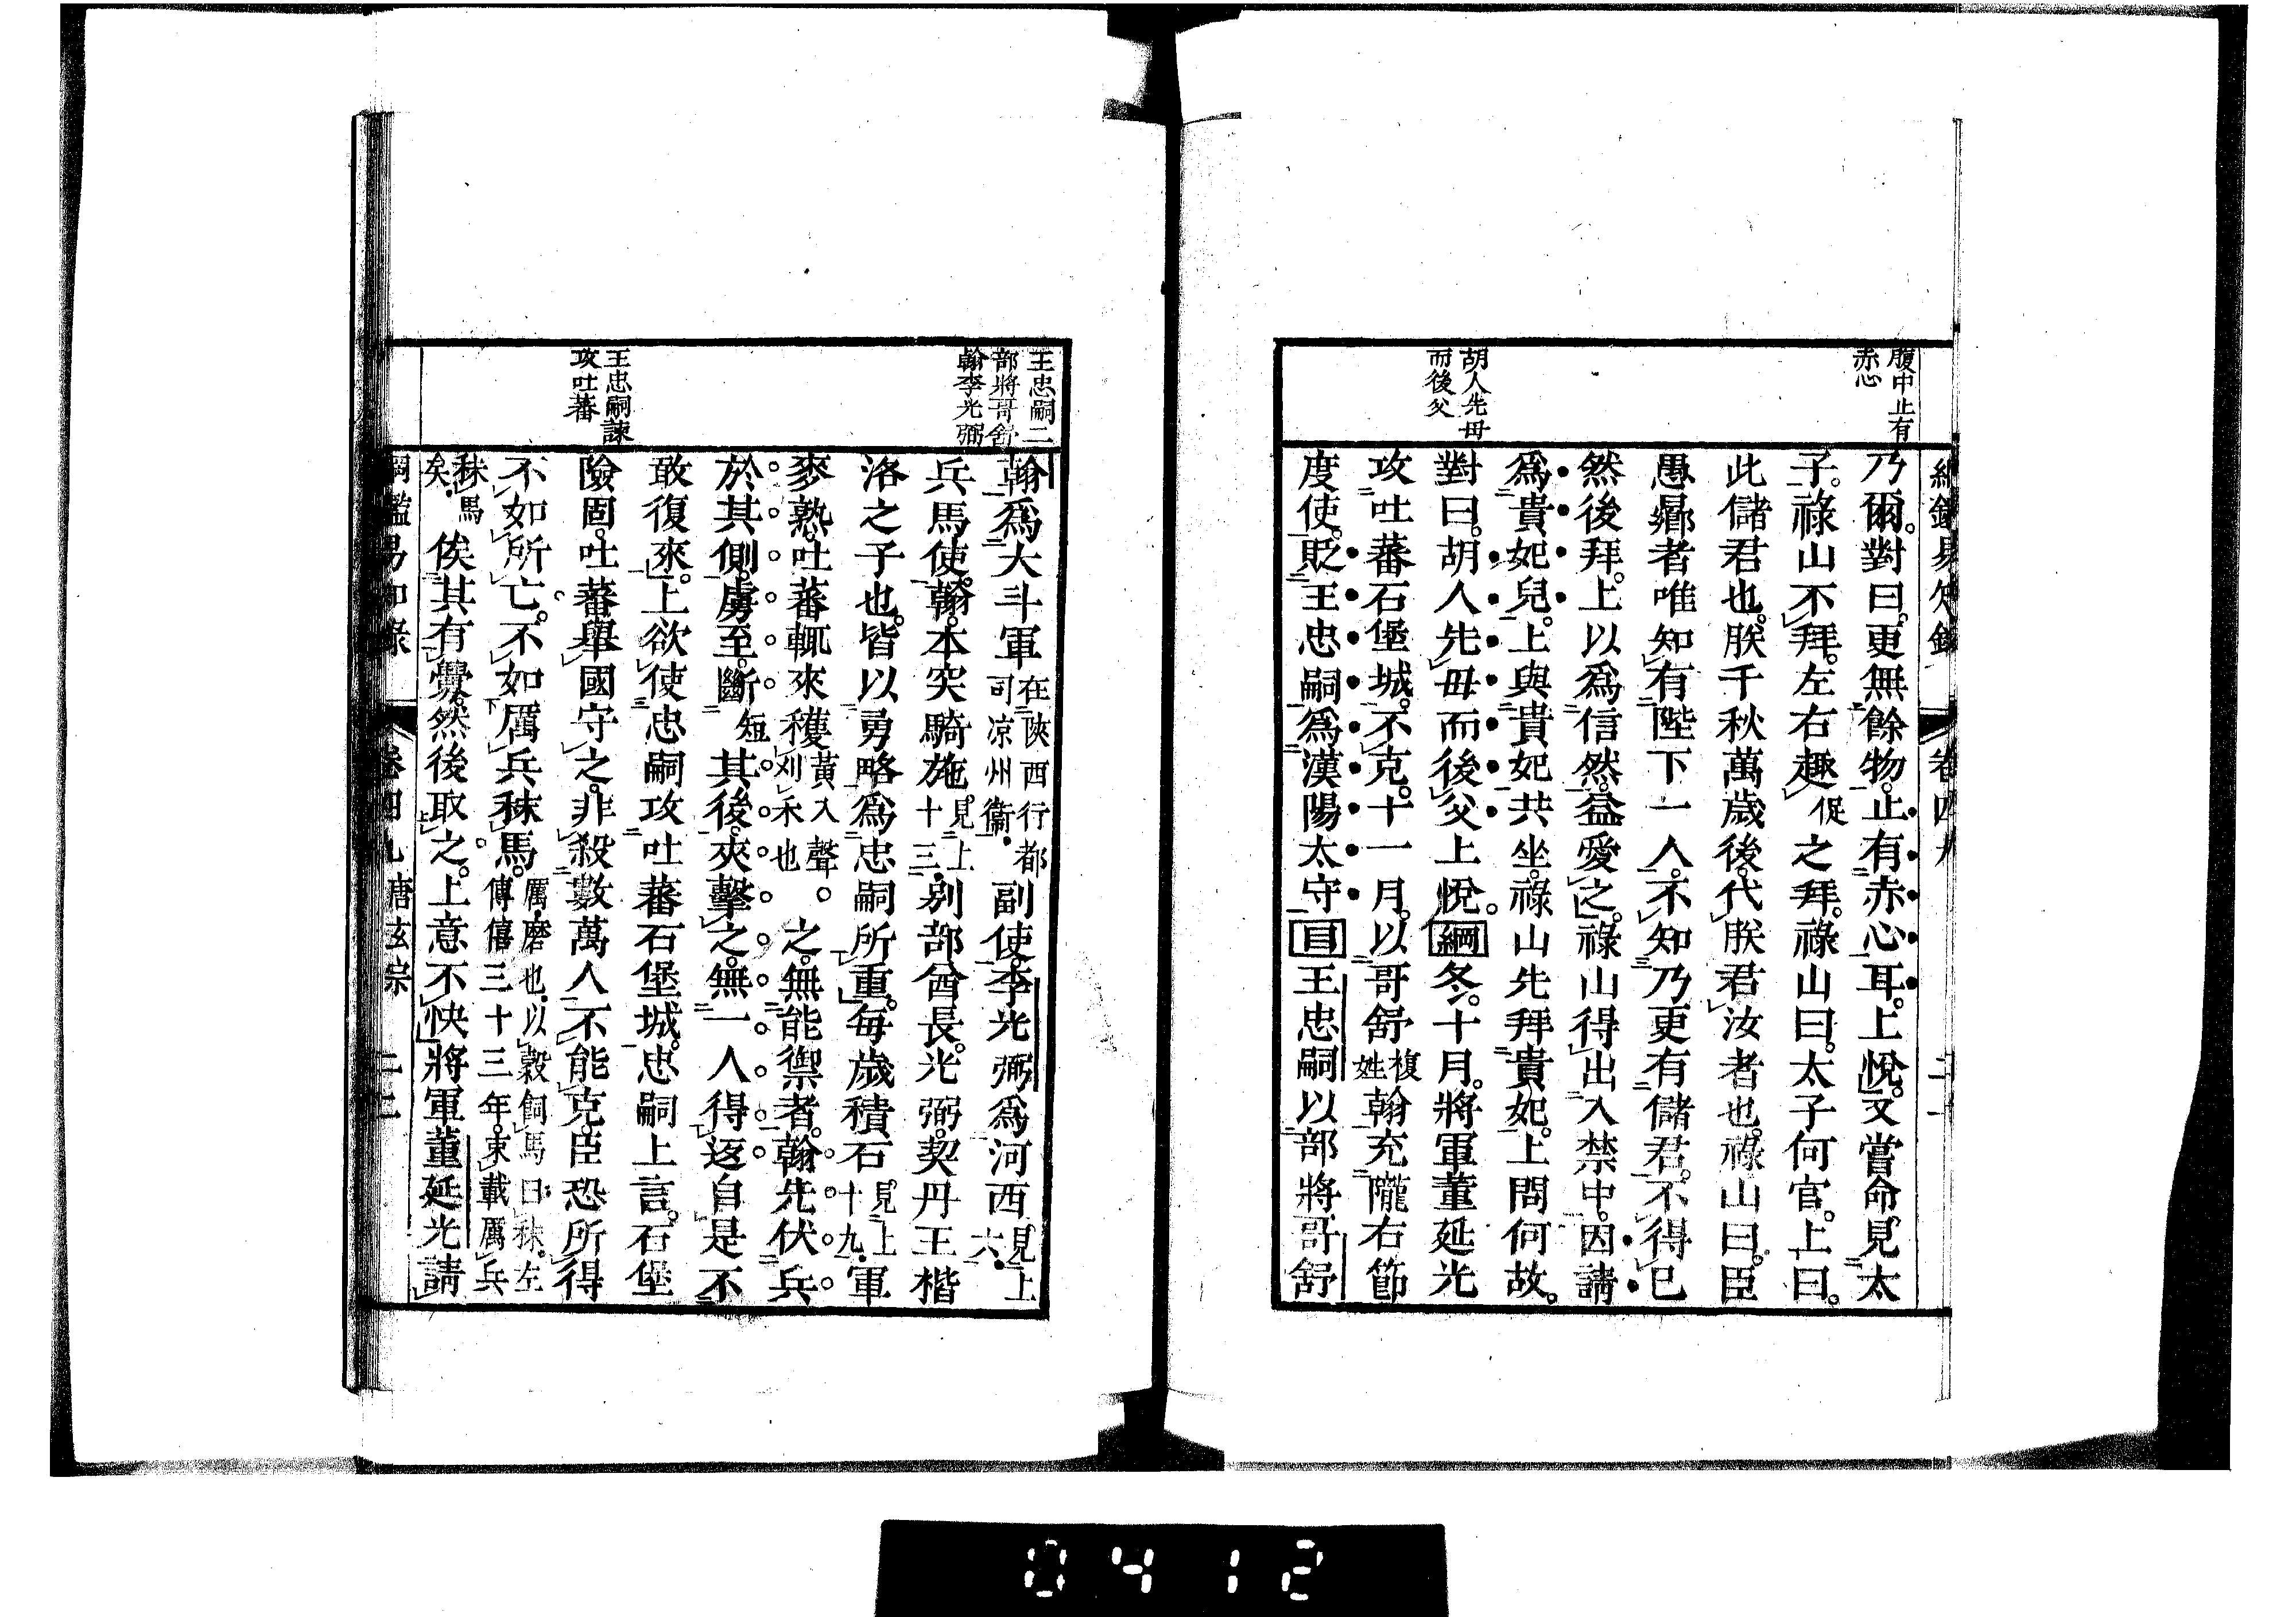 綱鑑易知錄 卷四九 二十一
腹中止有
赤心
胡人先母
而後父
乃爾。對曰。更無餘物。止有赤心耳。上悅。又嘗命見太
子。祿山不拜。左右趣促之拜。祿山曰。太子何官。上曰。
此儲君也。朕千秋萬歲後。代朕君汝者也。祿山曰。臣
愚曏者唯知有陛下一人。不知乃更有儲君。不得已
然後拜。上以爲信然。益愛之。祿山得出入禁中。因請
爲貴妃兒。上與貴妃共坐。祿山先拜貴妃。上問何故。
對曰。胡人先母而後父上悅。綱冬。十月。將軍董延光
攻吐蕃石堡城。不克。十一月。以哥舒複姓翰充隴右節
度使。貶王忠嗣爲漢陽太守目王忠嗣以部將哥舒
王忠嗣二
部將哥舒
翰李光弼
王忠嗣諫
攻吐蕃
翰爲大斗軍在陝西行都司凉州衞。副使。李光弼爲河西見上六。
兵馬使。翰。本突騎施。見上十三。別部酋長。光弼。契丹王楷
洛之子也。皆以勇略爲忠嗣所重。每歲積石見上十九。軍
麥熟。吐蕃輒來穫黃入聲。刈禾也之。無能禦者。翰先伏兵
於其側。虜至。斷短其後。夾擊之。無一人得返自是不
敢復來。上欲使忠嗣攻吐蕃石堡城。忠嗣上言。石堡
險固。吐蕃舉國守之。非殺數萬人不能克。臣恐所得
不如所亡。不如厲兵秣馬。厲。磨也。以穀飼馬曰秣。左傳僖三十三年。束載厲兵
秣馬矣。俟其有釁。然後取之。上意不快。將軍董延光請
綱鑑易知錄 卷四九唐玄宗 二十二
0412